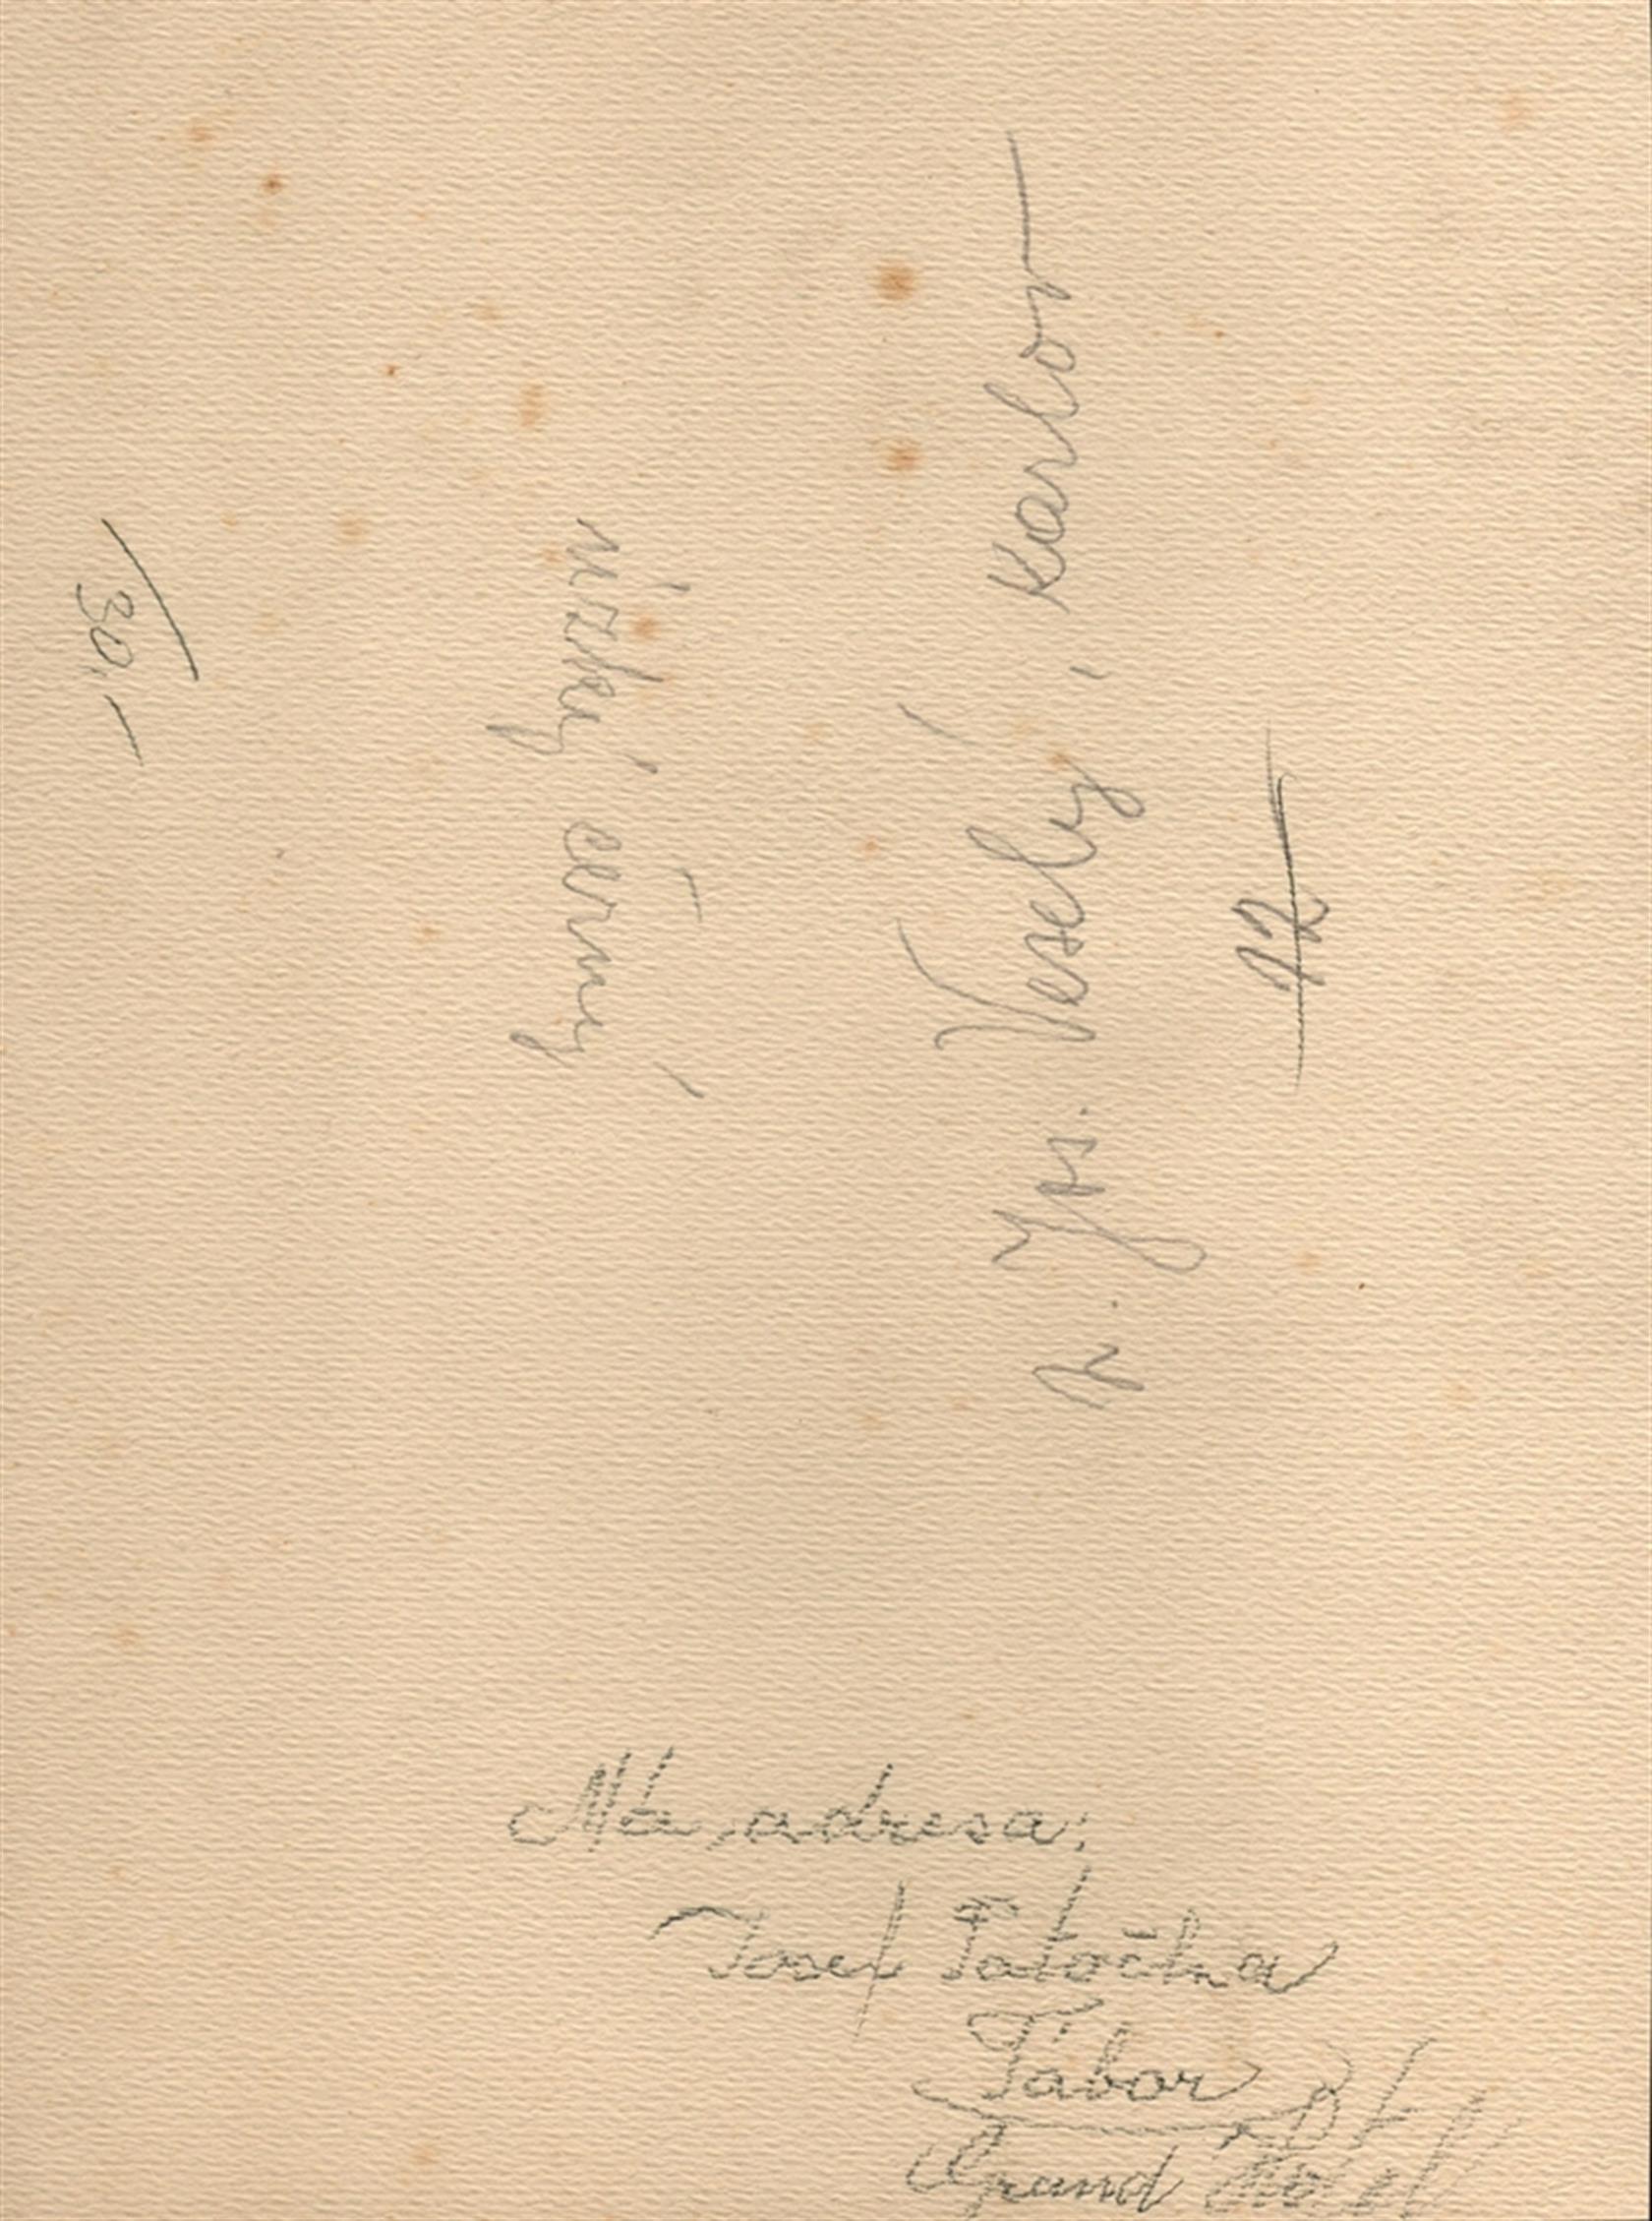 p. Jos. Veselý, Karlov
úzký černý
30.–
Má adresa:
Josef Patočka
Tábor
Grand Hotel